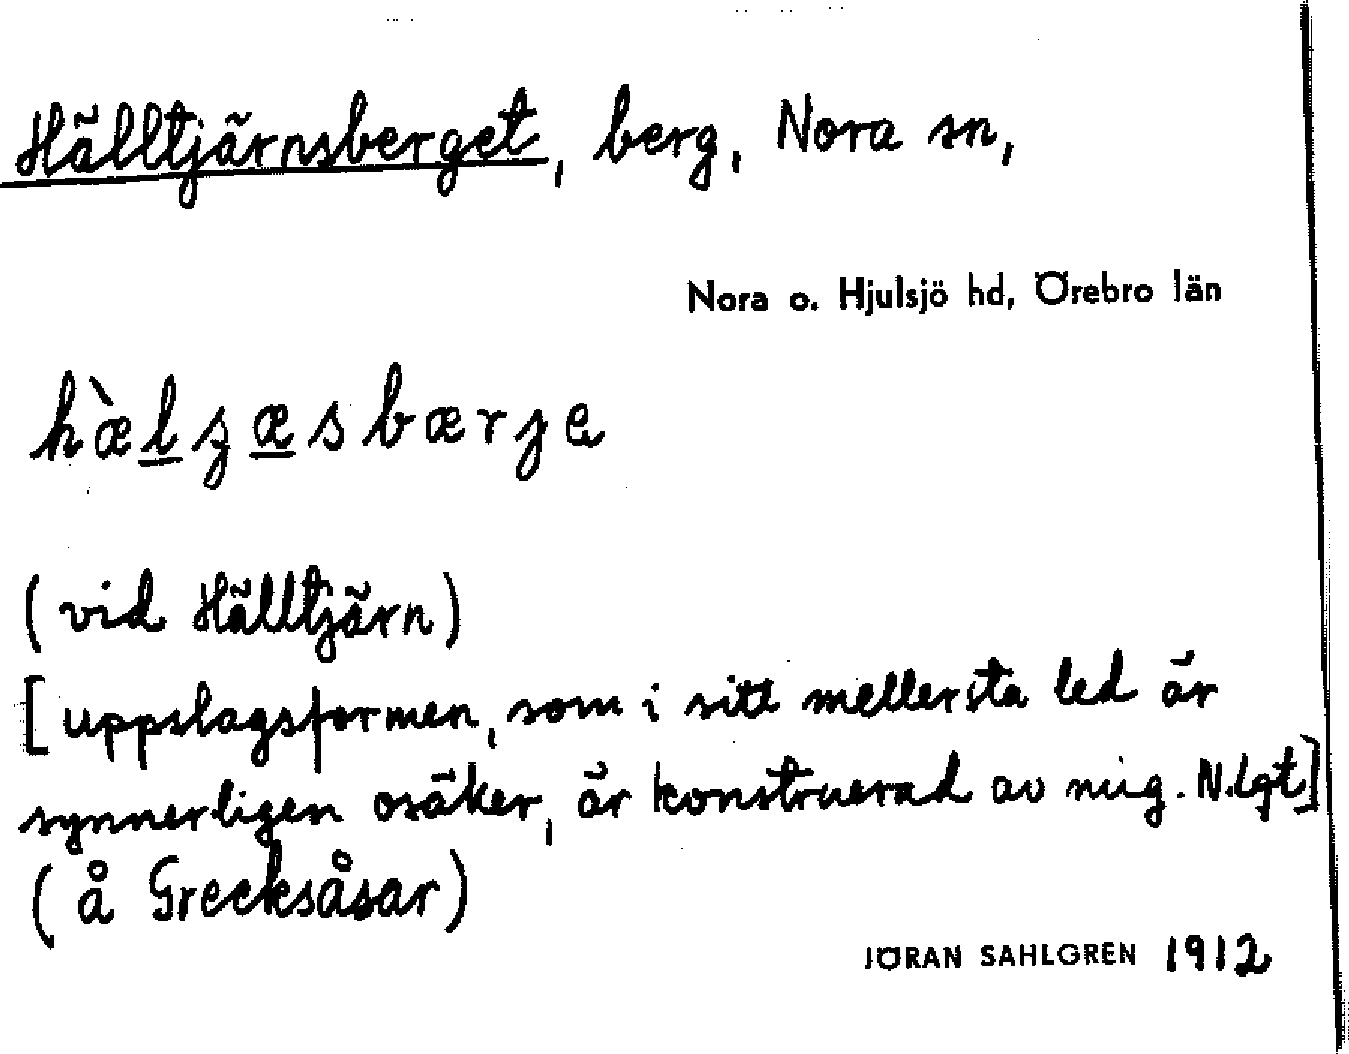 Hälltjärnsberget, berg, Nora sn,
Nora o. Hjulsjö hd, Örebro län
hæ̀l̲ʒæ̲sbærje
(vid Hälltjärn)
[uppslagsformen, som i sitt mellersta led är
synnerligen osäker, är konstruerad av mig. N.lgt]
(å Grecksåsar)
JÖRAN SAHLGREN 1912